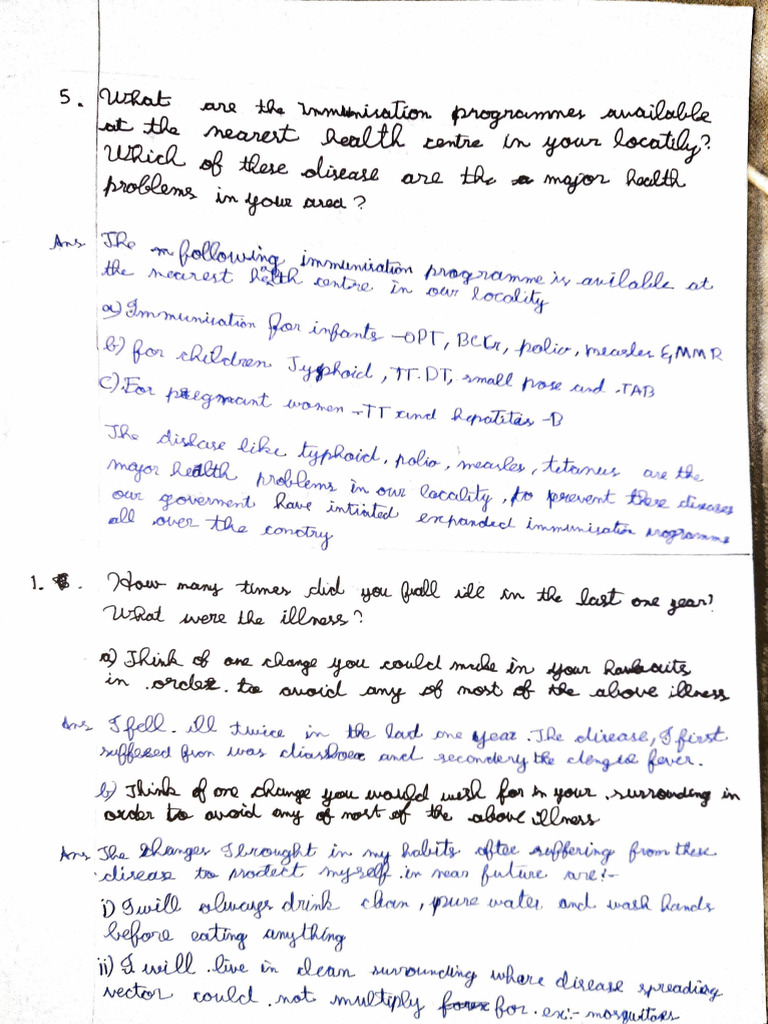 5. What are the immunisation programmes available
at the nearest health centre in your locatily?
Which of these disease are the major health
problems in your area?
Ans The following immunisation programme is avilable at
the nearest health centre in our locality
a) Immunisation for infants - OPT, BCG, polio, measles & MMR
b) for children Typhoid, TT. DT, small pose and TAB
c) For pregnant women - TT and hepatitas - B
The disease like typhoid, polio, measles, tetanus are the
major health problems in our locality, to prevent these diseases
our goverment have intiated expanded immunisation programme
all over the conotry
1. How many times did you fall ill in the last one year?
What were the illness?
a) Think of one change you could make in your
in order to avoid any of most of the above illness
Ans I fell ill twice in the last one year. The disease, I first
suffered from was and secondery the fever.
b) Think of one change you would wish for in your surrounding in
order to avoid any of most of the above illness
Ans The changes I brought in my habits after suffering from these
disease to protect myself in near future are:-
i) I will always drink clean, pure water and wash hands
before eating anything
ii) I will live in clean surrounding where disease spreading
vector could not multiply for ex:- mosquitoes